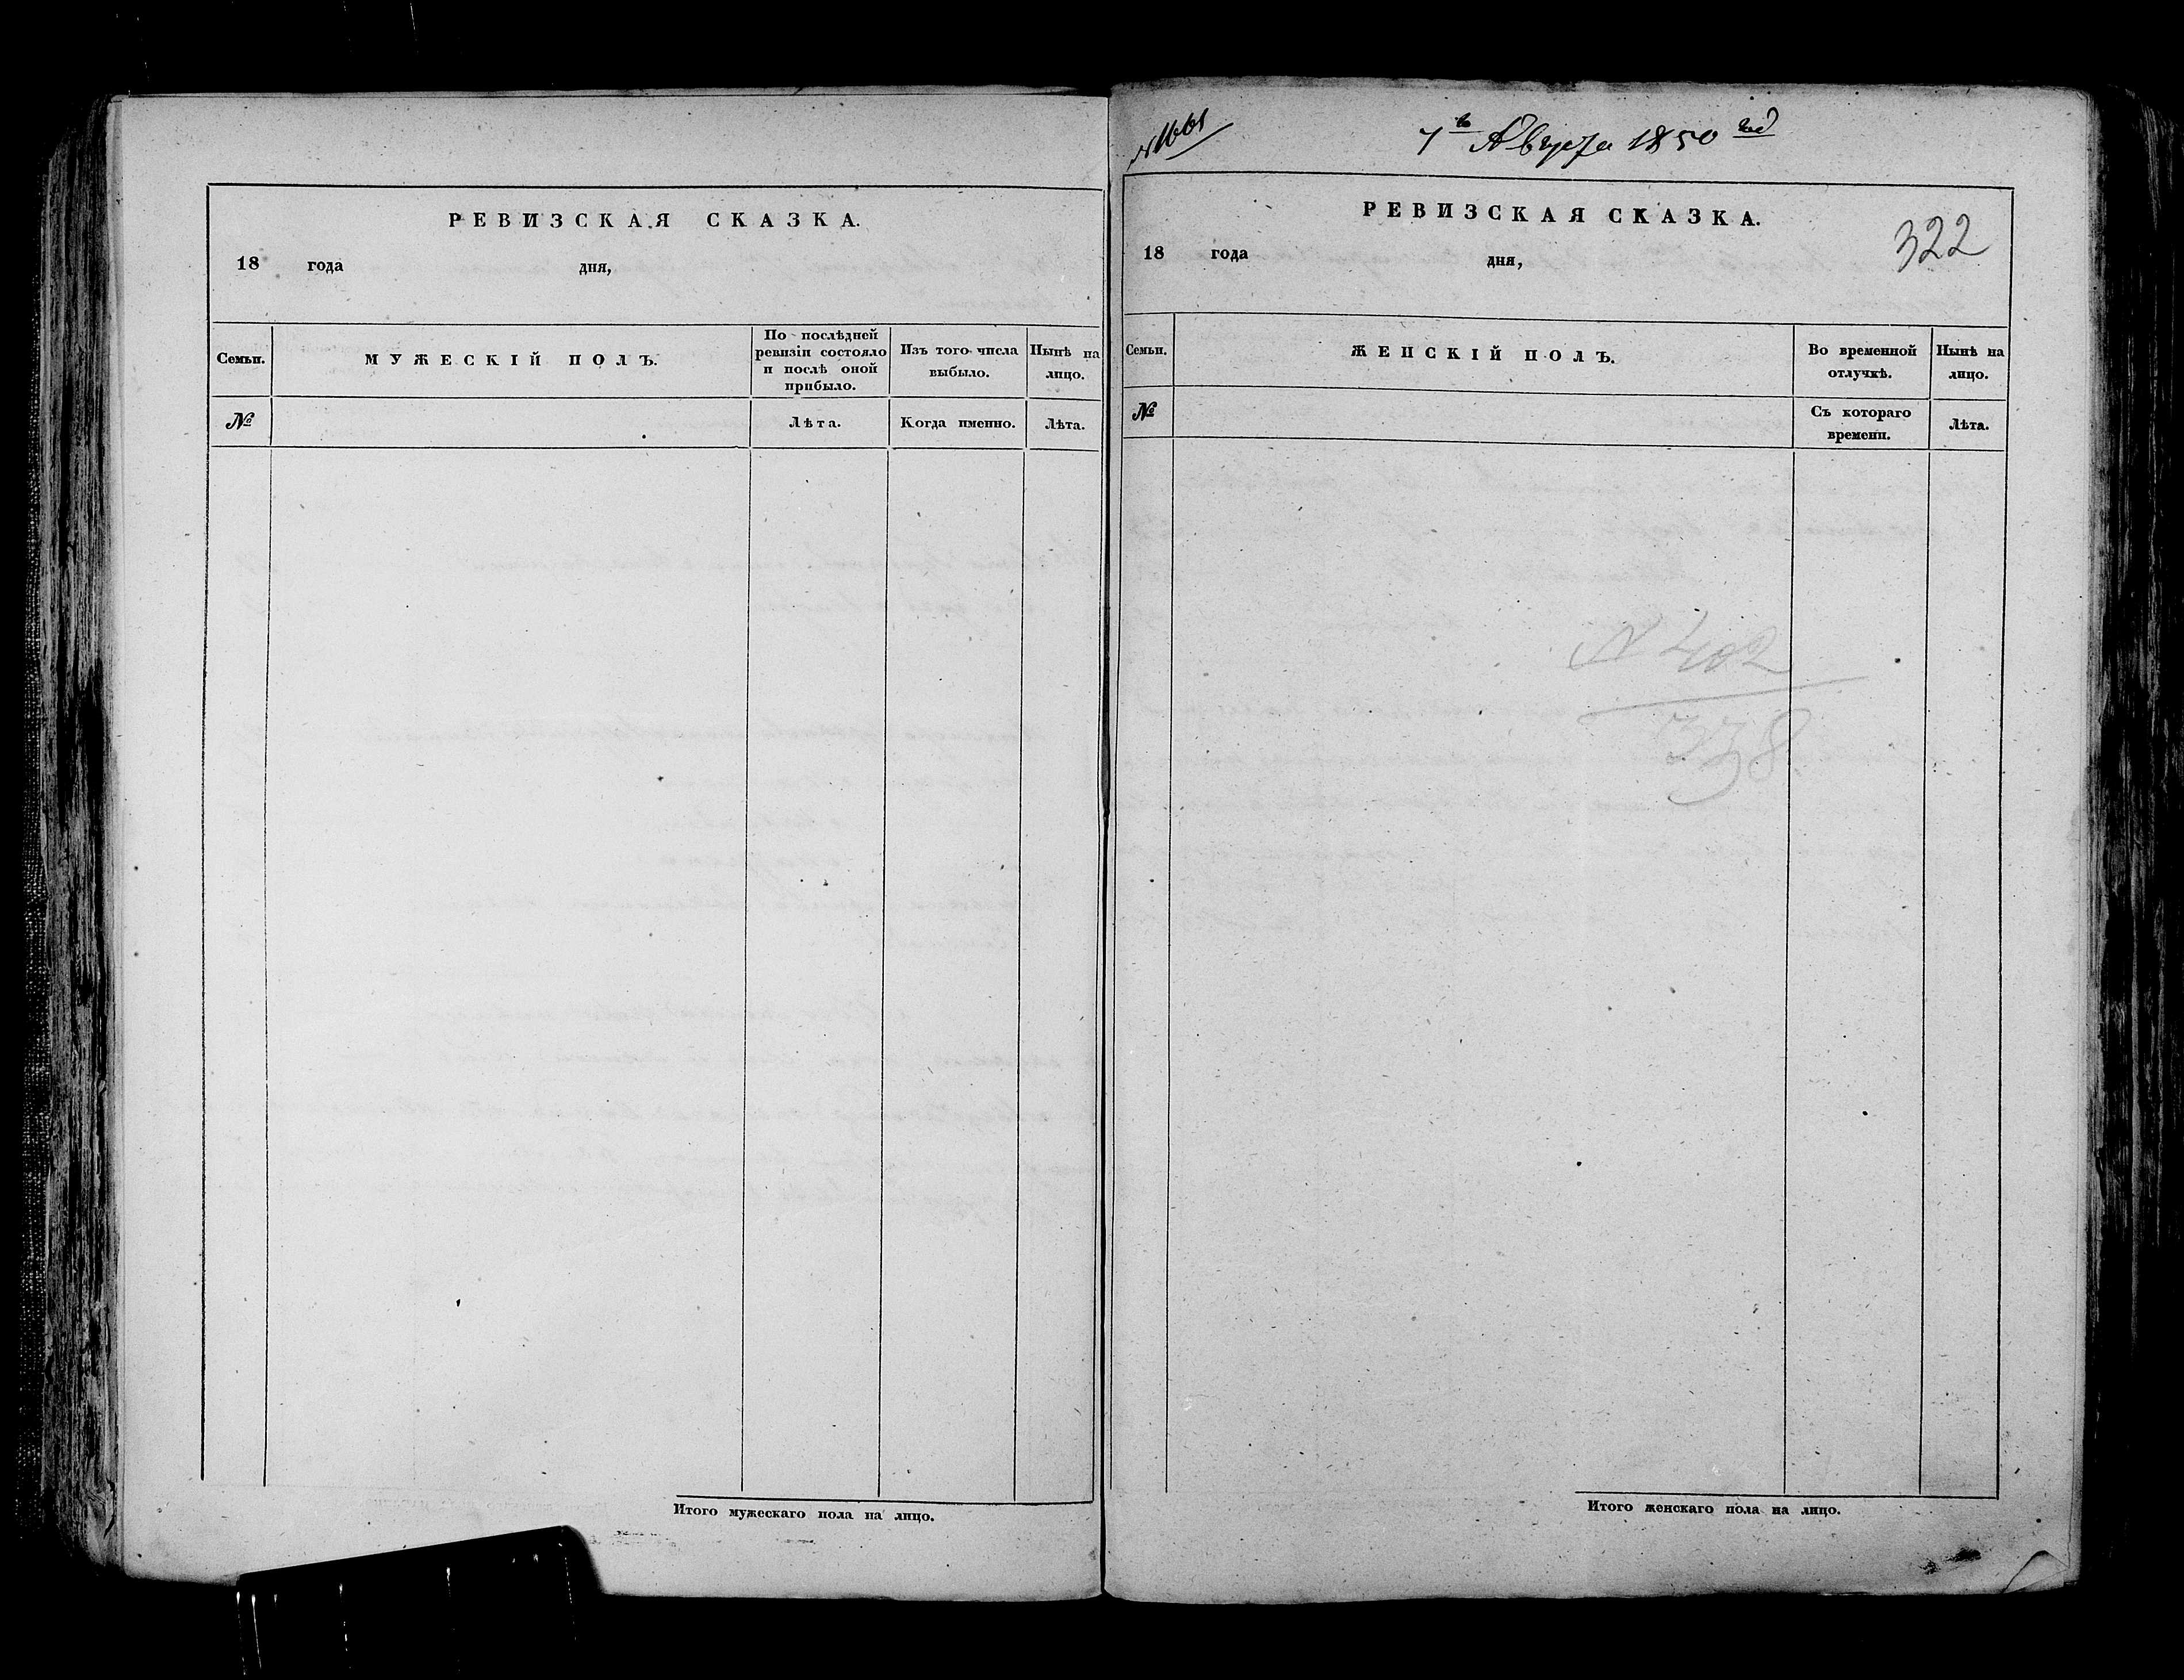 РЕВИЗСКАЯ СКАЗКА.
18 года дня,
Семьи.
МУЖЕСКІЙ ПОЛЪ.
По послѣдней ревизіи состояло и послѣ оной прибыло.
Изъ того числа выбыло.
Нынѣ на лицо.
№
Лѣта.
Когда именно.
Лѣта.
Итого мужескаго пола на лицо.
7 Августа 1850
РЕВИЗСКАЯ СКАЗКА.
322
18 года дня,
Семьи.
ЖЕНСКІЙ ПОЛЪ.
Во временной отлучкѣ.
Нынѣ на лицо.
№
Съ котораго времени.
Лѣта.
N 402
338
Итого женскаго пола на лицо.